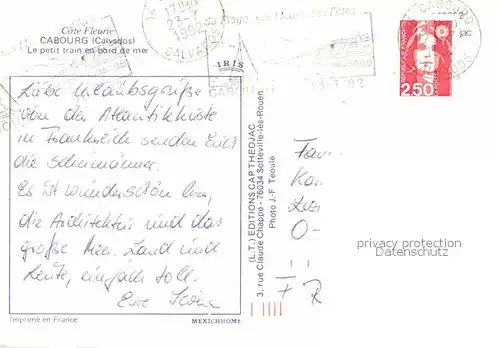 Côte Fleurie
CABOURG (Calvados)
Le petit train en bord de mer
IRIS
23-7
1992
CALVADOS
Sa Plage, ses Fleurs, ses Fêtes
CABOURG
23-7-92
2,50
Liebe Urlaubsgrüße
von der Atlantikküste
in Frankreich senden Euch
die
Es ist wunderschön hier,
die Architektur und das
große Meer. Land und
Leute, einfach toll.
Eure
Fam
(L.T.) EDITIONS CAP THEOJAC
3, rue Claude Chappe - 76034 Sotteville-lès-Rouen
Photo J.-F Teoulé
privacy protection
Datenschutz
F R
Imprimé en France
MEXICHROME